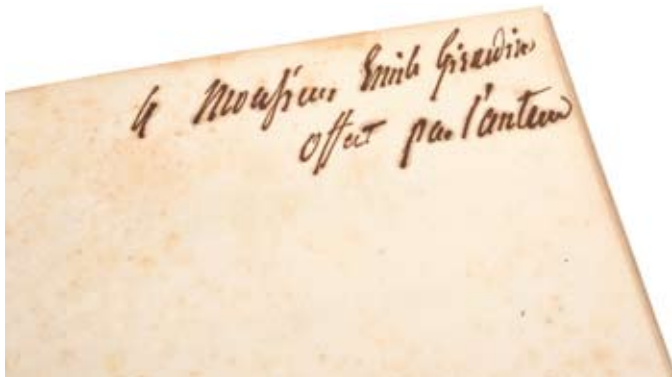 A Monsieur Emile Girardin
offert par l'auteur